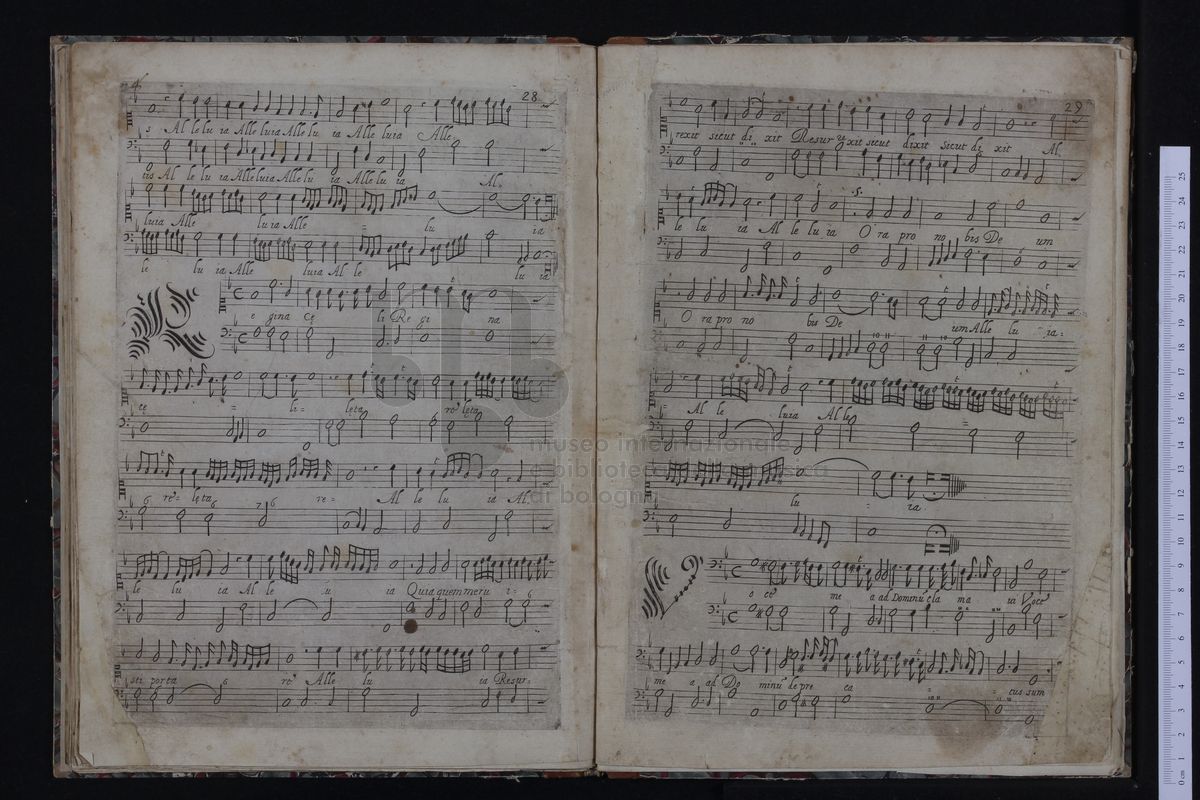 28
s Al le lu ia Alle luia Alle lu ia Alle luia Alle
tis Al le lu ia Alle luia Alle lu ia Alle lu ia Al.
luia Alle lu ia Alle = lu ia
le lu ia Alle luia Al le lu ia
R e gina Ce li Re gi na
ce = li = leta re leta
re = leta re = Al le lu ia Al.
6 6 7 6
le lu ia Al le lu ia Quia quem meru i =
6
sti porta re Alle lu ia Resur=
6
29
rexit sicut di xit Resur rexit sicut dixit Sicut di xit Al.
le lu ia Al le lu ia O ra pro no bis De um
O ra pro no bis De um Alle lu ia =
Al le luia Al le =
lu = ia
V o ce me a ad Dominū cla ma ui Voce
me a ad Do minū de pre ca = = tus sum
museo internazionale
e biblioteca della musica
di bologna